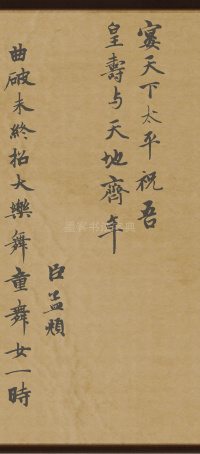 宴天下太平祝吾
皇壽与天地齊年
臣孟頫
曲破未終招大樂舞童舞女一時